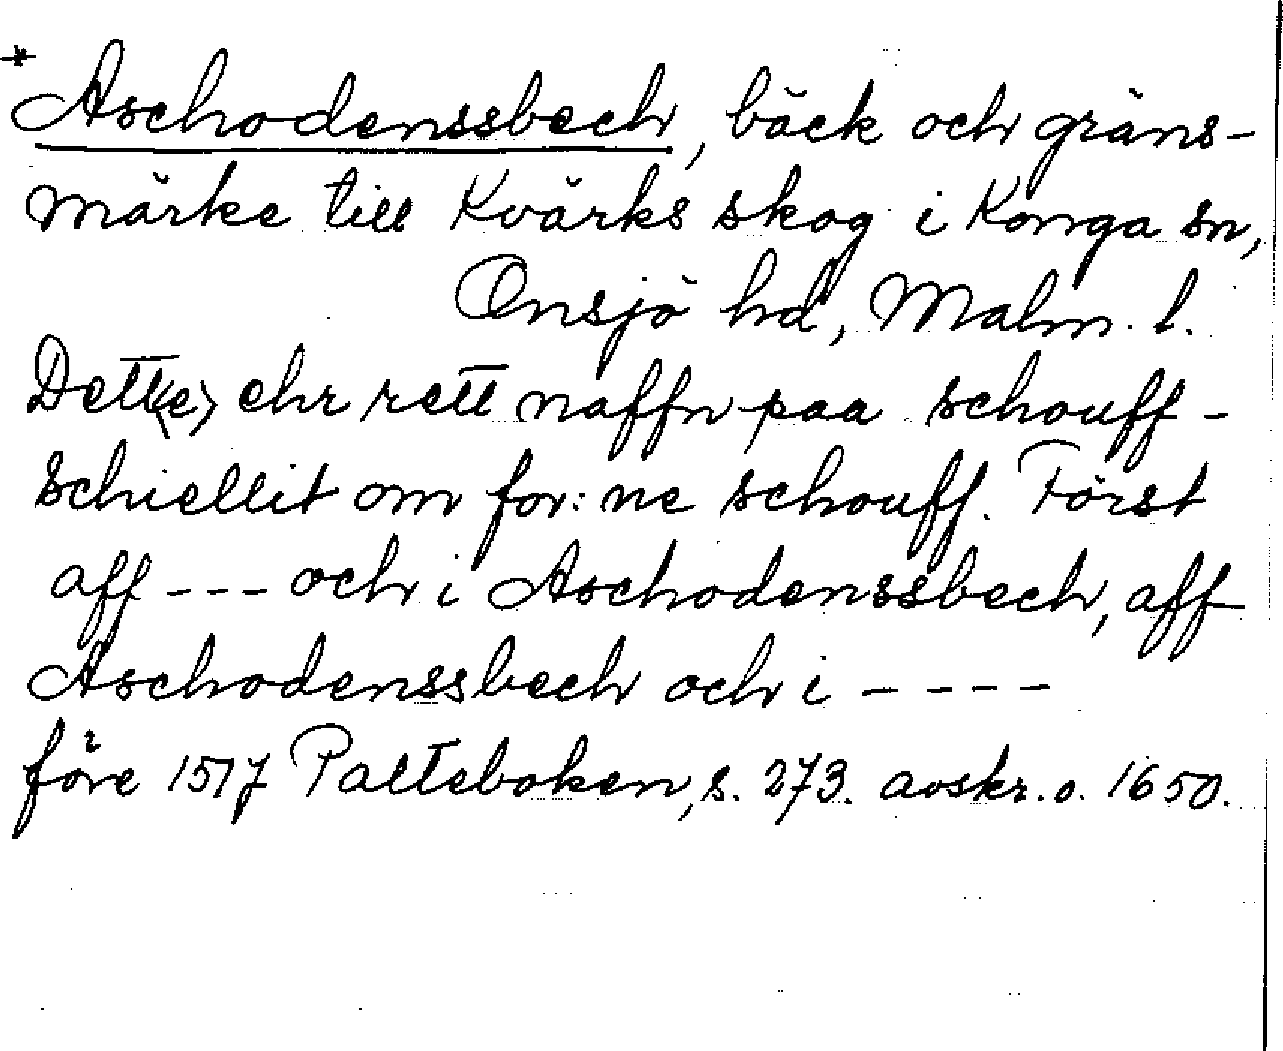 * Aschodenssbech, bäck och gräns-
märke till Kvärks skog i Konga sn,
Onsjö hd, Malm. l.
Dett<e> ehr rett naffn paa schouff-
schiellit om for:ne schouff. Först
aff --- och i Aschodenssbech, aff
Aschodenssbech och i ----
före 1517 Palteboken, s. 273. avskr. o. 1650.